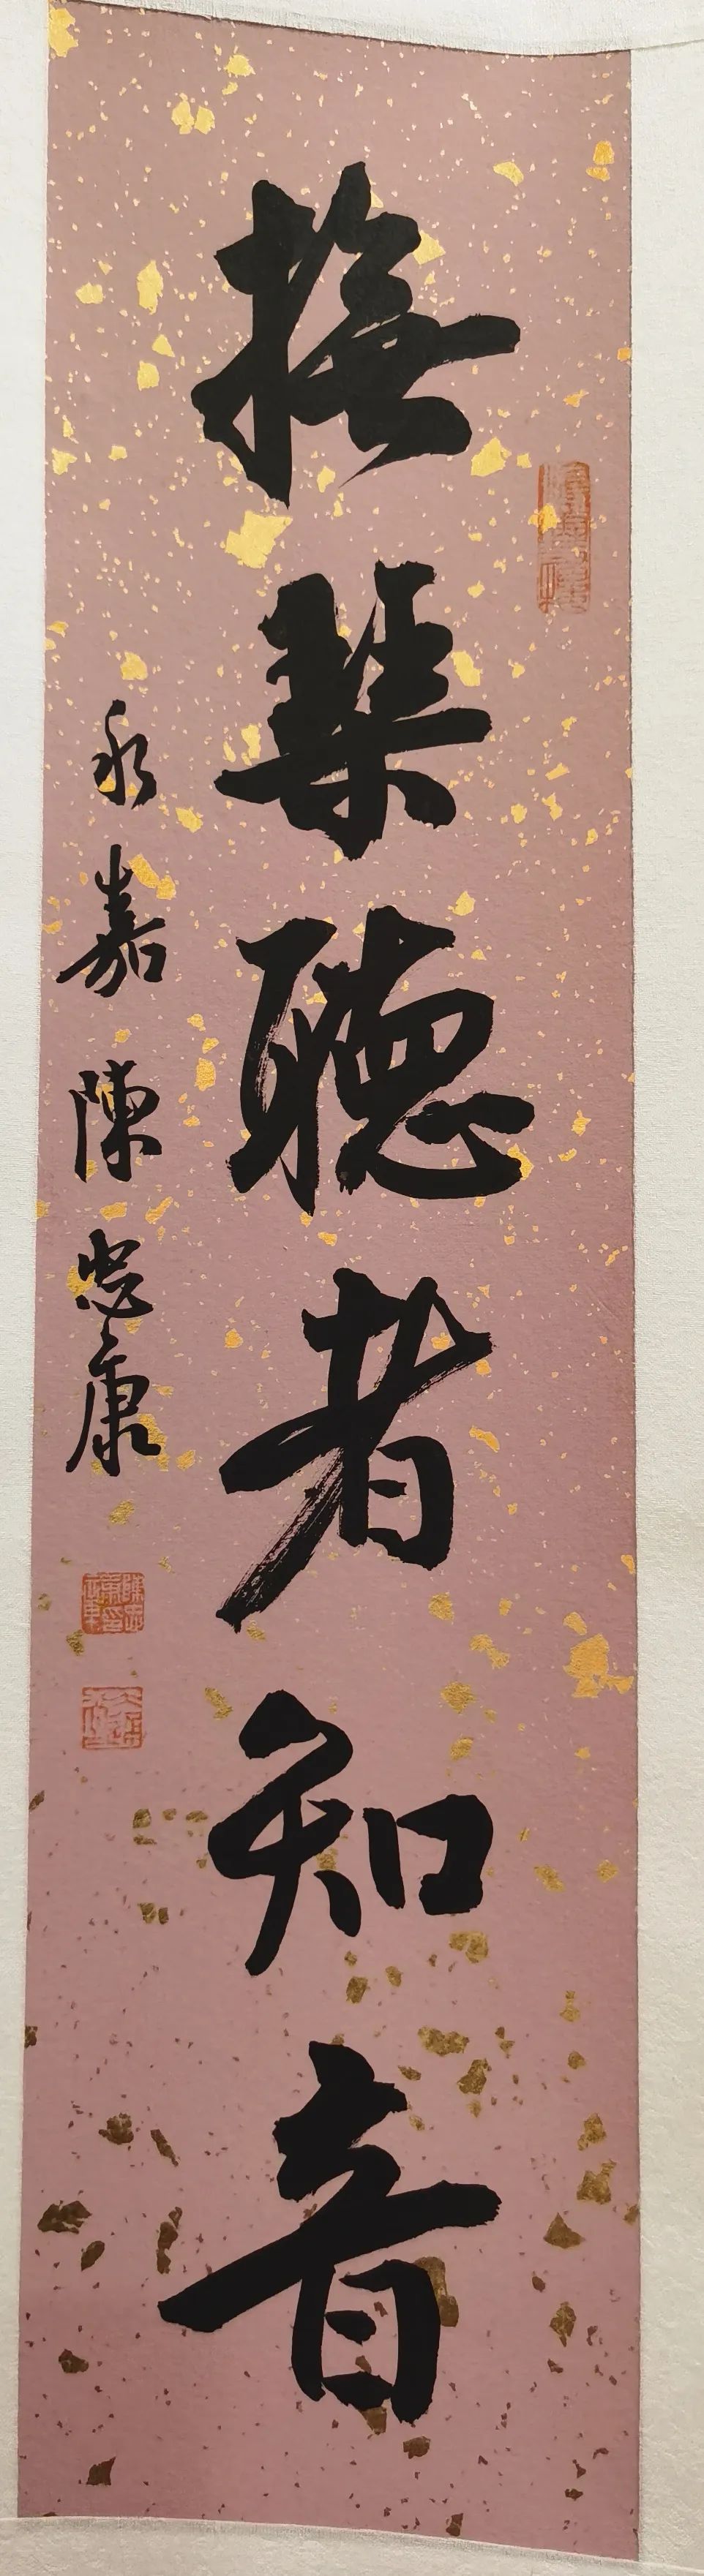 撫琴聽者知音
永嘉陳忠康